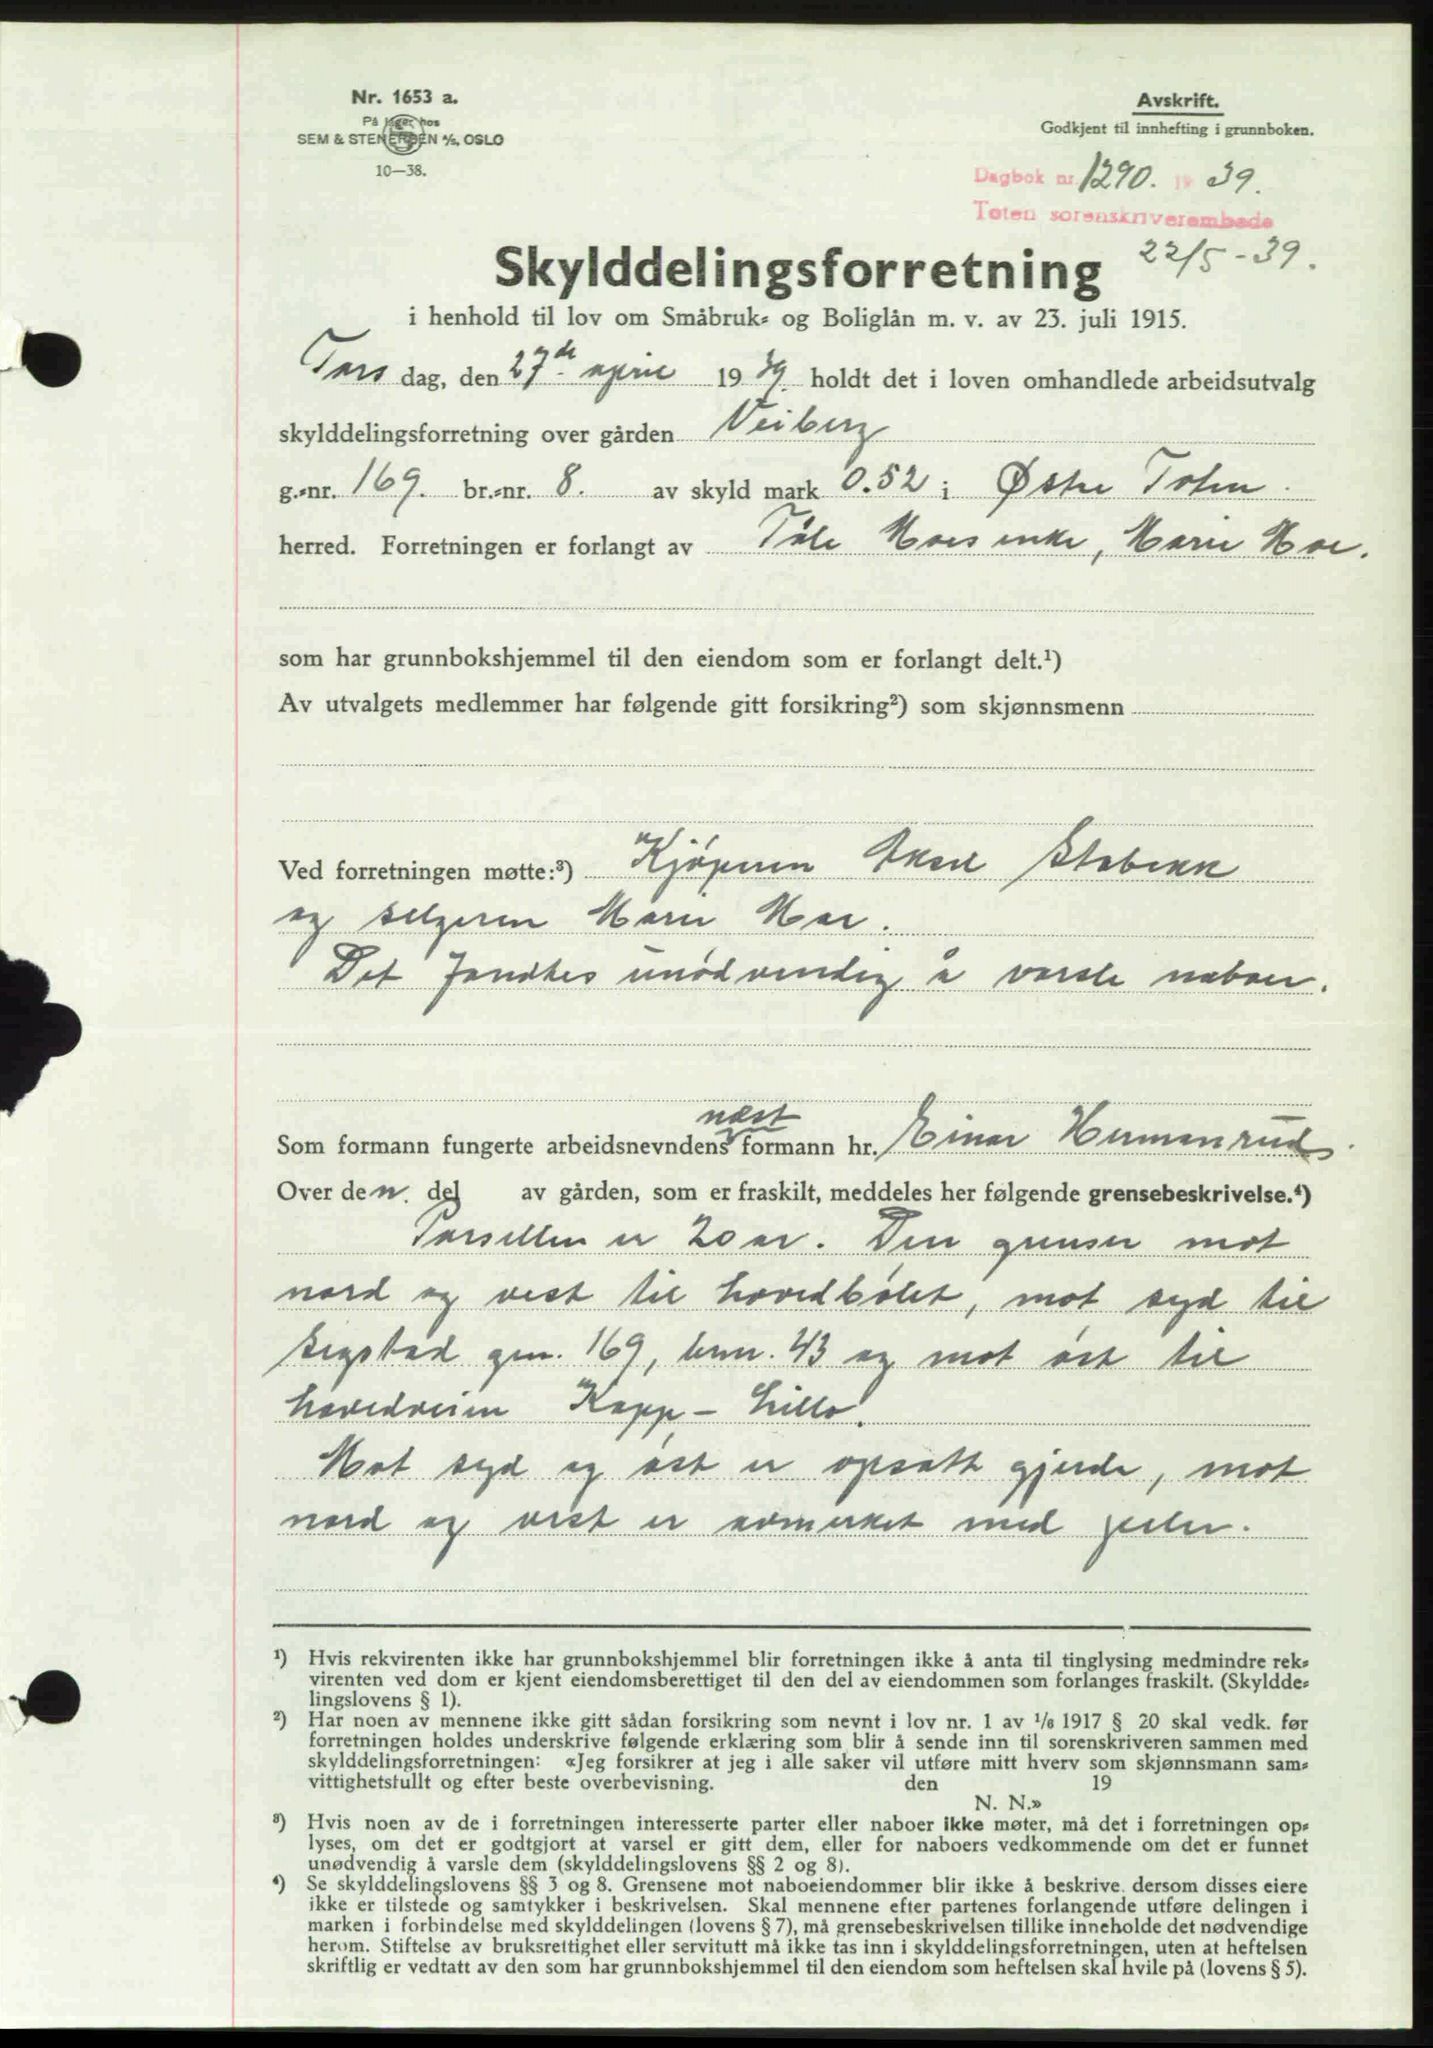 Nr. 1653 a.
På lager hos
SEM & STENERSEN A/S, OSLO
10—38.
Avskrift.
Godkjent til innhefting i grunnboken.
Dagbok nr. 1290. 19 39.
Toten sorenskriverembede
22/5-39.
Skylddelingsforretning
i henhold til lov om Småbruk- og Boliglån m. v. av 23. juli 1915.
Tors dag, den 27de april 1939. holdt det i loven omhandlede arbeidsutvalg
skylddelingsforretning over gården Veiberg
g.-nr. 169. br.-nr. 8. av skyld mark 0.52 i Østre Toten.
herred. Forretningen er forlangt av Tåle Moes enke, Marie Moe.
som har grunnbokshjemmel til den eiendom som er forlangt delt.¹)
Av utvalgets medlemmer har følgende gitt forsikring²) som skjønnsmenn
Ved forretningen møtte:³) Kjøperen Aksel Stabekk
og selgeren Marie Moe.
Det fandtes unødvendig å varsle naboer.
næst
Som formann fungerte arbeidsnevndens formann hr. Einar Hermansrud.
Over den. del av gården, som er fraskilt, meddeles her følgende grensebeskrivelse.⁴)
Parsellen er 20 ar. Den grenser mot
nord og vest til hovedbølet, mot syd til
Sigstad gnr. 169, brnr. 43 og mot øst til
hovedveien Kapp - Lillo.
Mot syd og øst er opsatt gjerde, mot
nord og vest er avmerket med peler.
¹) Hvis rekvirenten ikke har grunnbokshjemmel blir forretningen ikke å anta til tinglysing medmindre rek-
virenten ved dom er kjent eiendomsberettiget til den del av eiendommen som forlanges fraskilt. (Skyldde-
lingslovens § 1).
²) Har noen av mennene ikke gitt sådan forsikring som nevnt i lov nr. 1 av 1/6 1917 § 20 skal vedk. før
forretningen holdes underskrive følgende erklæring som blir å sende inn til sorenskriveren sammen med
skylddelingsforretningen: «Jeg forsikrer at jeg i alle saker vil utføre mitt hverv som skjønnsmann sam-
vittighetsfullt og efter beste overbevisning. den 19
N. N.»
³) Hvis noen av de i forretningen interesserte parter eller naboer ikke møter, må det i forretningen op-
lyses, om det er godtgjort at varsel er gitt dem, eller for naboers vedkommende om det er funnet
unødvendig å varsle dem (skylddelingslovens §§ 2 og 8).
⁴) Se skylddelingslovens §§ 3 og 8. Grensene mot naboeiendommer blir ikke å beskrive, dersom disses eiere
ikke er tilstede og samtykker i beskrivelsen. Skal mennene efter partenes forlangende utføre delingen i
marken i forbindelse med skylddelingen (lovens § 7), må grensebeskrivelsen tillike inneholde det nødvendige
herom. Stiftelse av bruksrettighet eller servitutt må ikke tas inn i skylddelingsforretningen, uten at heftelsen
skriftlig er vedtatt av den som har grunnbokshjemmel til den eiendom som heftelsen skal hvile på (lovens § 5).